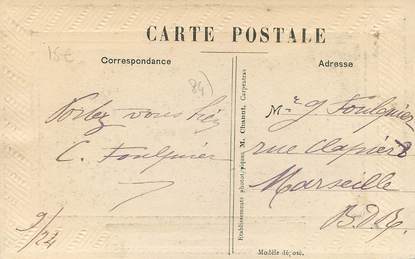 CARTE POSTALE
Correspondance
Adresse
15€
84)
Portez vous bien
C. Foulquier
9/24
Etablissements photographiques M. Chanut, Carpentras
Mr G. Foulquier
rue Clapier 8
Marseille
B.D.R.
Modèle déposé.